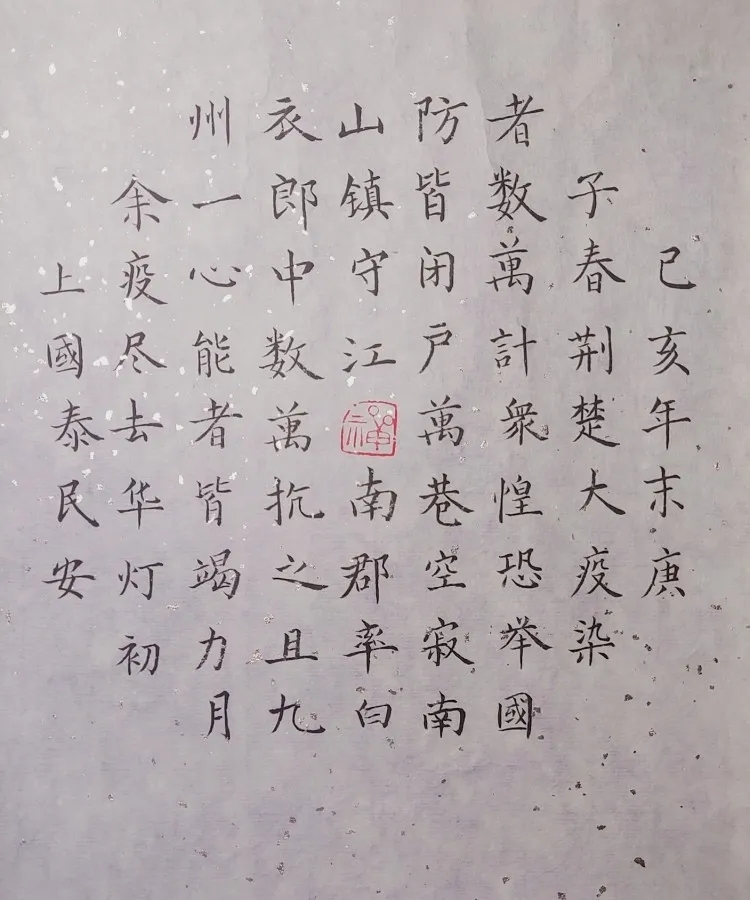 己亥年末庚
子春荆楚大疫染
者数萬計衆惶恐举國
防皆闭户萬巷空寂南
山镇守江南郡率白
衣郎中数萬抗之且九
州一心能者皆竭力月
余疫尽去华灯初
上國泰民安